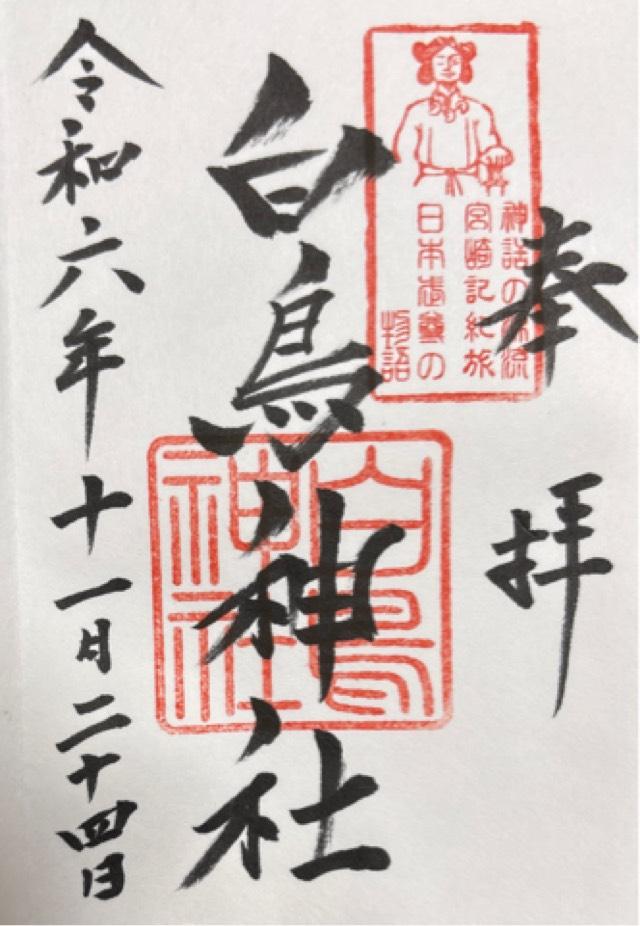 奉拝
神話の源流
宮崎記紀旅
日本武尊の
物語
白鳥神社
白鳥
神社
令和六年十一月二十四日